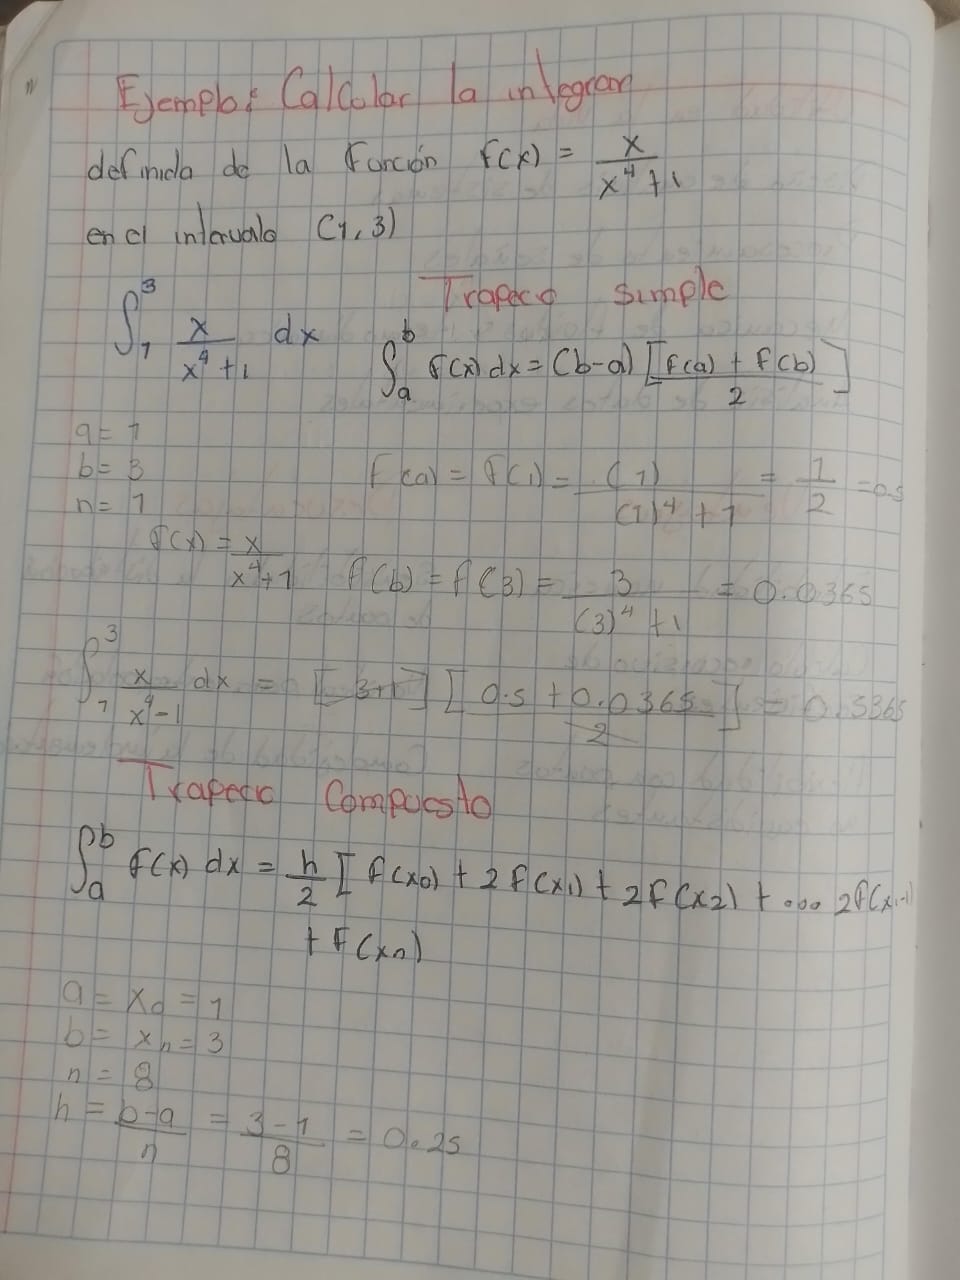 Ejemplo: Calcular la integran
definida de la Función f(x) = x / x⁴ + 1
en el intervalo (1, 3)
∫₁³ x / x⁴ + 1 dx
Trapecio simple
∫ₐᵇ f(x) dx = (b-a) [f(a) + f(b) / 2]
a = 1
b = 3
n = 1
f(x) = x / x⁴ + 1
f(a) = f(1) = (1) / (1)⁴ + 1 = 1 / 2 = 0.5
f(b) = f(3) = 3 / (3)⁴ + 1 = 0.0365
∫₁³ x / x⁴ - 1 dx = [3+1] [0.5 + 0.0365 / 2] = 0.5365
Trapecio Compuesto
∫ₐᵇ f(x) dx = h / 2 [f(x₀) + 2f(x₁) + 2f(x₂) + ... 2f(xₙ₋₁)
+ f(xₙ)
a = x₀ = 1
b = xₙ = 3
n = 8
h = b-a / n = 3-1 / 8 = 0.25